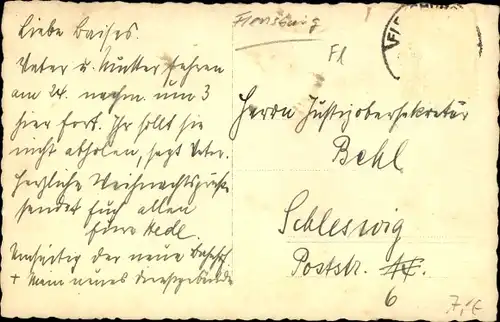 Liebe
Vater u. Mutter fahren
am 24. nachm. um 3
hier fort. Ihr sollt sie
nicht abholen, sagt Vater.
Herzliche Weihnachtsgrüße
sendet Euch allen
Eure Hedel.
Umseitig der neue Bahnhof
+ mein neues Dienstgebäude
Flensburg
Fl
Herrn Justizobersekretär
Behl
Schleswig
Poststr.
6
7,-€